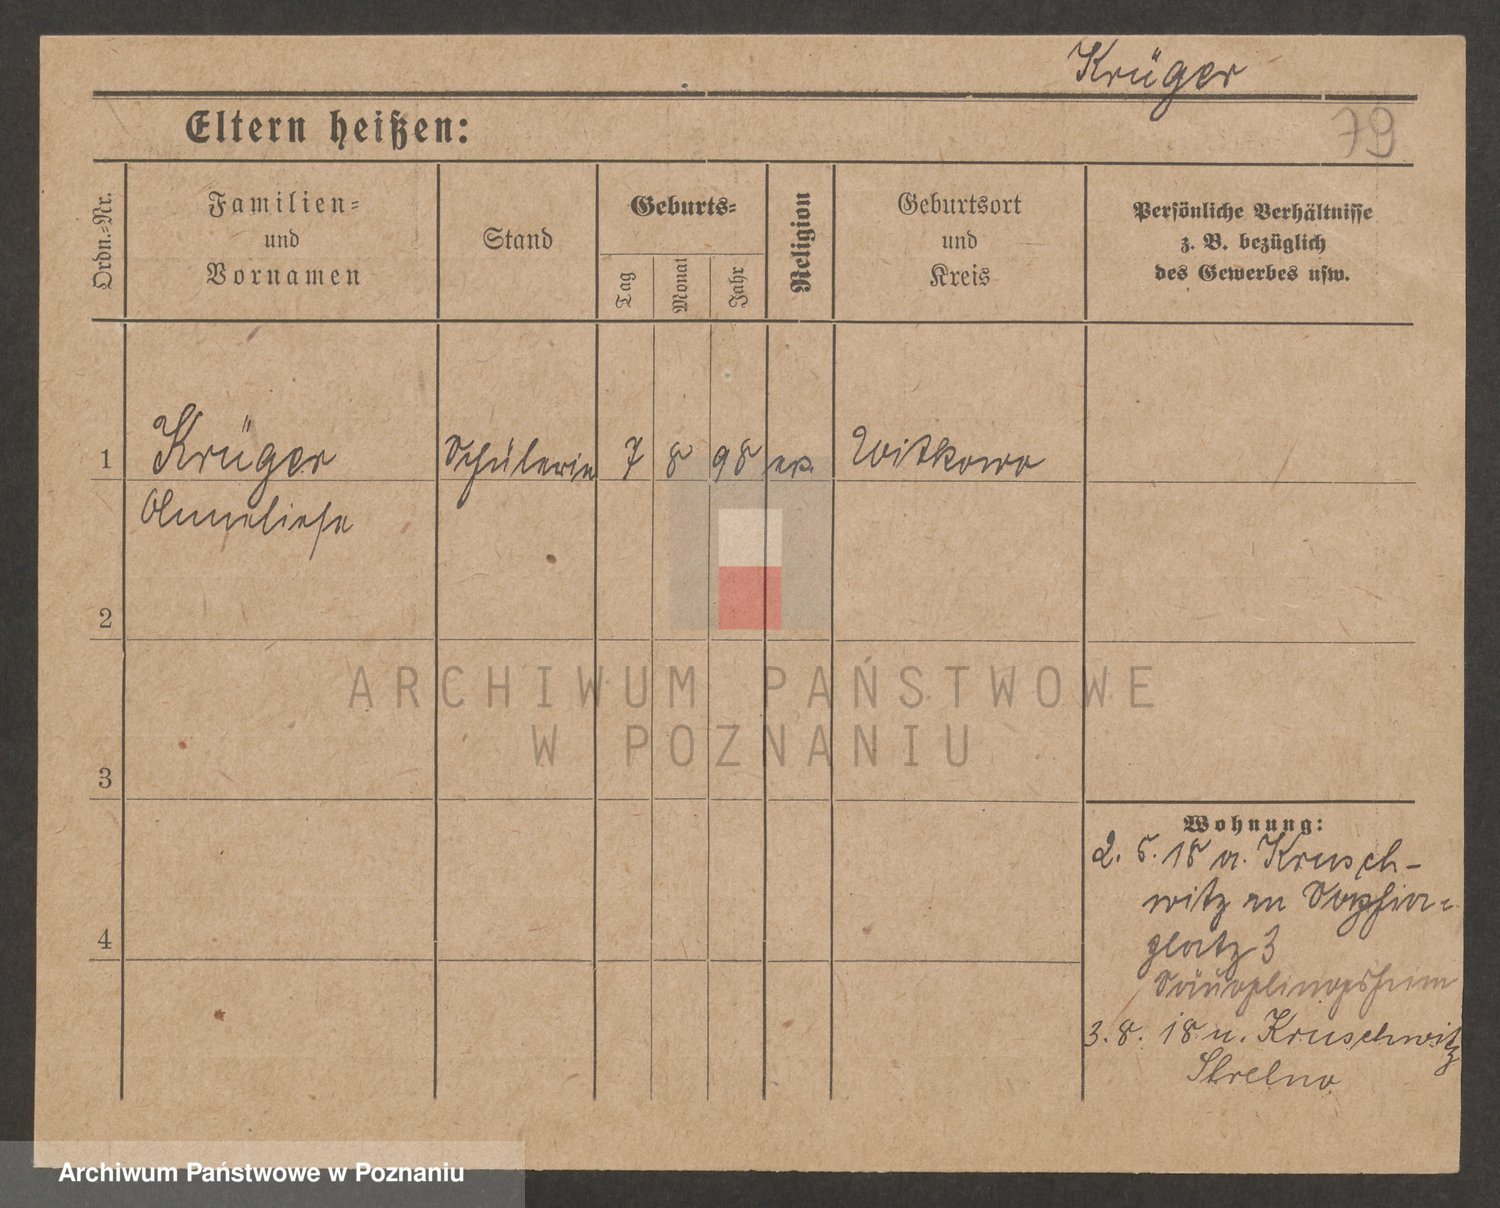 Krüger
79
Eltern heißen:
Ordn.-Nr.
Familien-
und
Vornamen
Stand
Geburts-
Tag
Monat
Jahr
Religion
Geburtsort
und
Kreis
Persönliche Verhältnisse
z. B. bezüglich
des Gewerbes usw.
1 Krüger Schülerin 7 8 98 ev. Witkowo
Anneliese
2
3
4
ARCHIWUM PAŃSTWOWE
W POZNANIU
Wohnung:
2. 5. 18 v. Krusch-
witz an Sophia-
platz 3
Säuglingsheim
3. 8. 18 n. Kruschwitz
Strelno
Archiwum Państwowe w Poznaniu